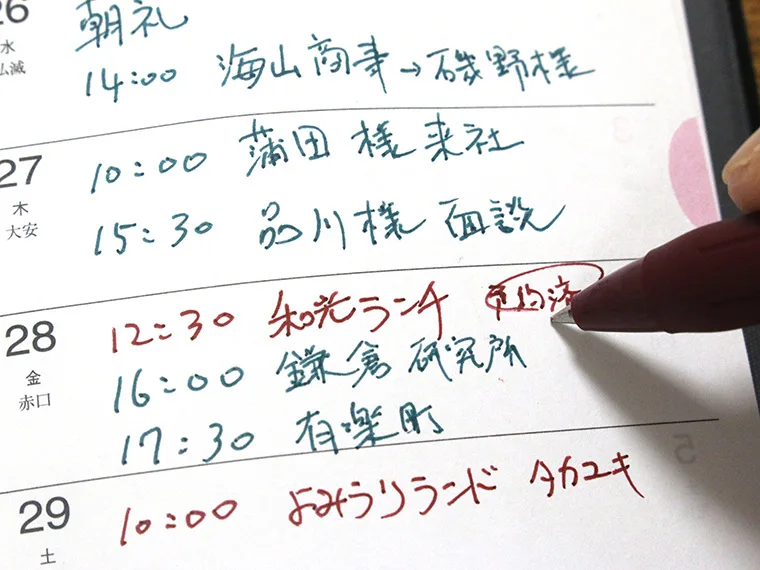 26 朝礼
水
仏滅
14:00 海山商事→磯野様
27 10:00 蒲田様来社
木
大安
15:30 品川様 面談
28 12:30 和光ランチ 予約済
金
赤口
16:00 鎌倉研究所
17:30 有楽町
29 10:00 よみうりランド タカユキ
土